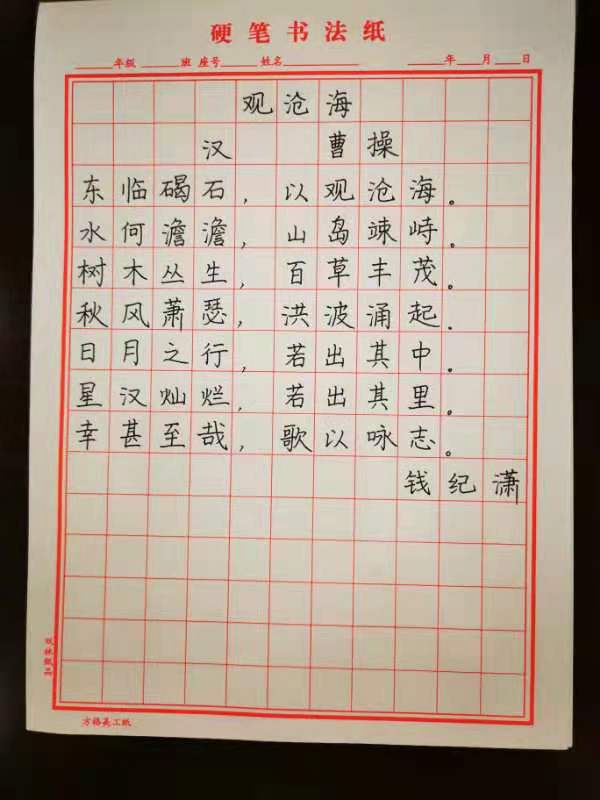 硬笔书法纸
年级 班 座号 姓名 年 月 日
观沧海
汉 曹操
东临碣石，以观沧海。
水何澹澹，山岛竦峙。
树木丛生，百草丰茂。
秋风萧瑟，洪波涌起.
日月之行，若出其中。
星汉灿烂，若出其里。
幸甚至哉，歌以咏志。
钱纪潇
方格美工纸